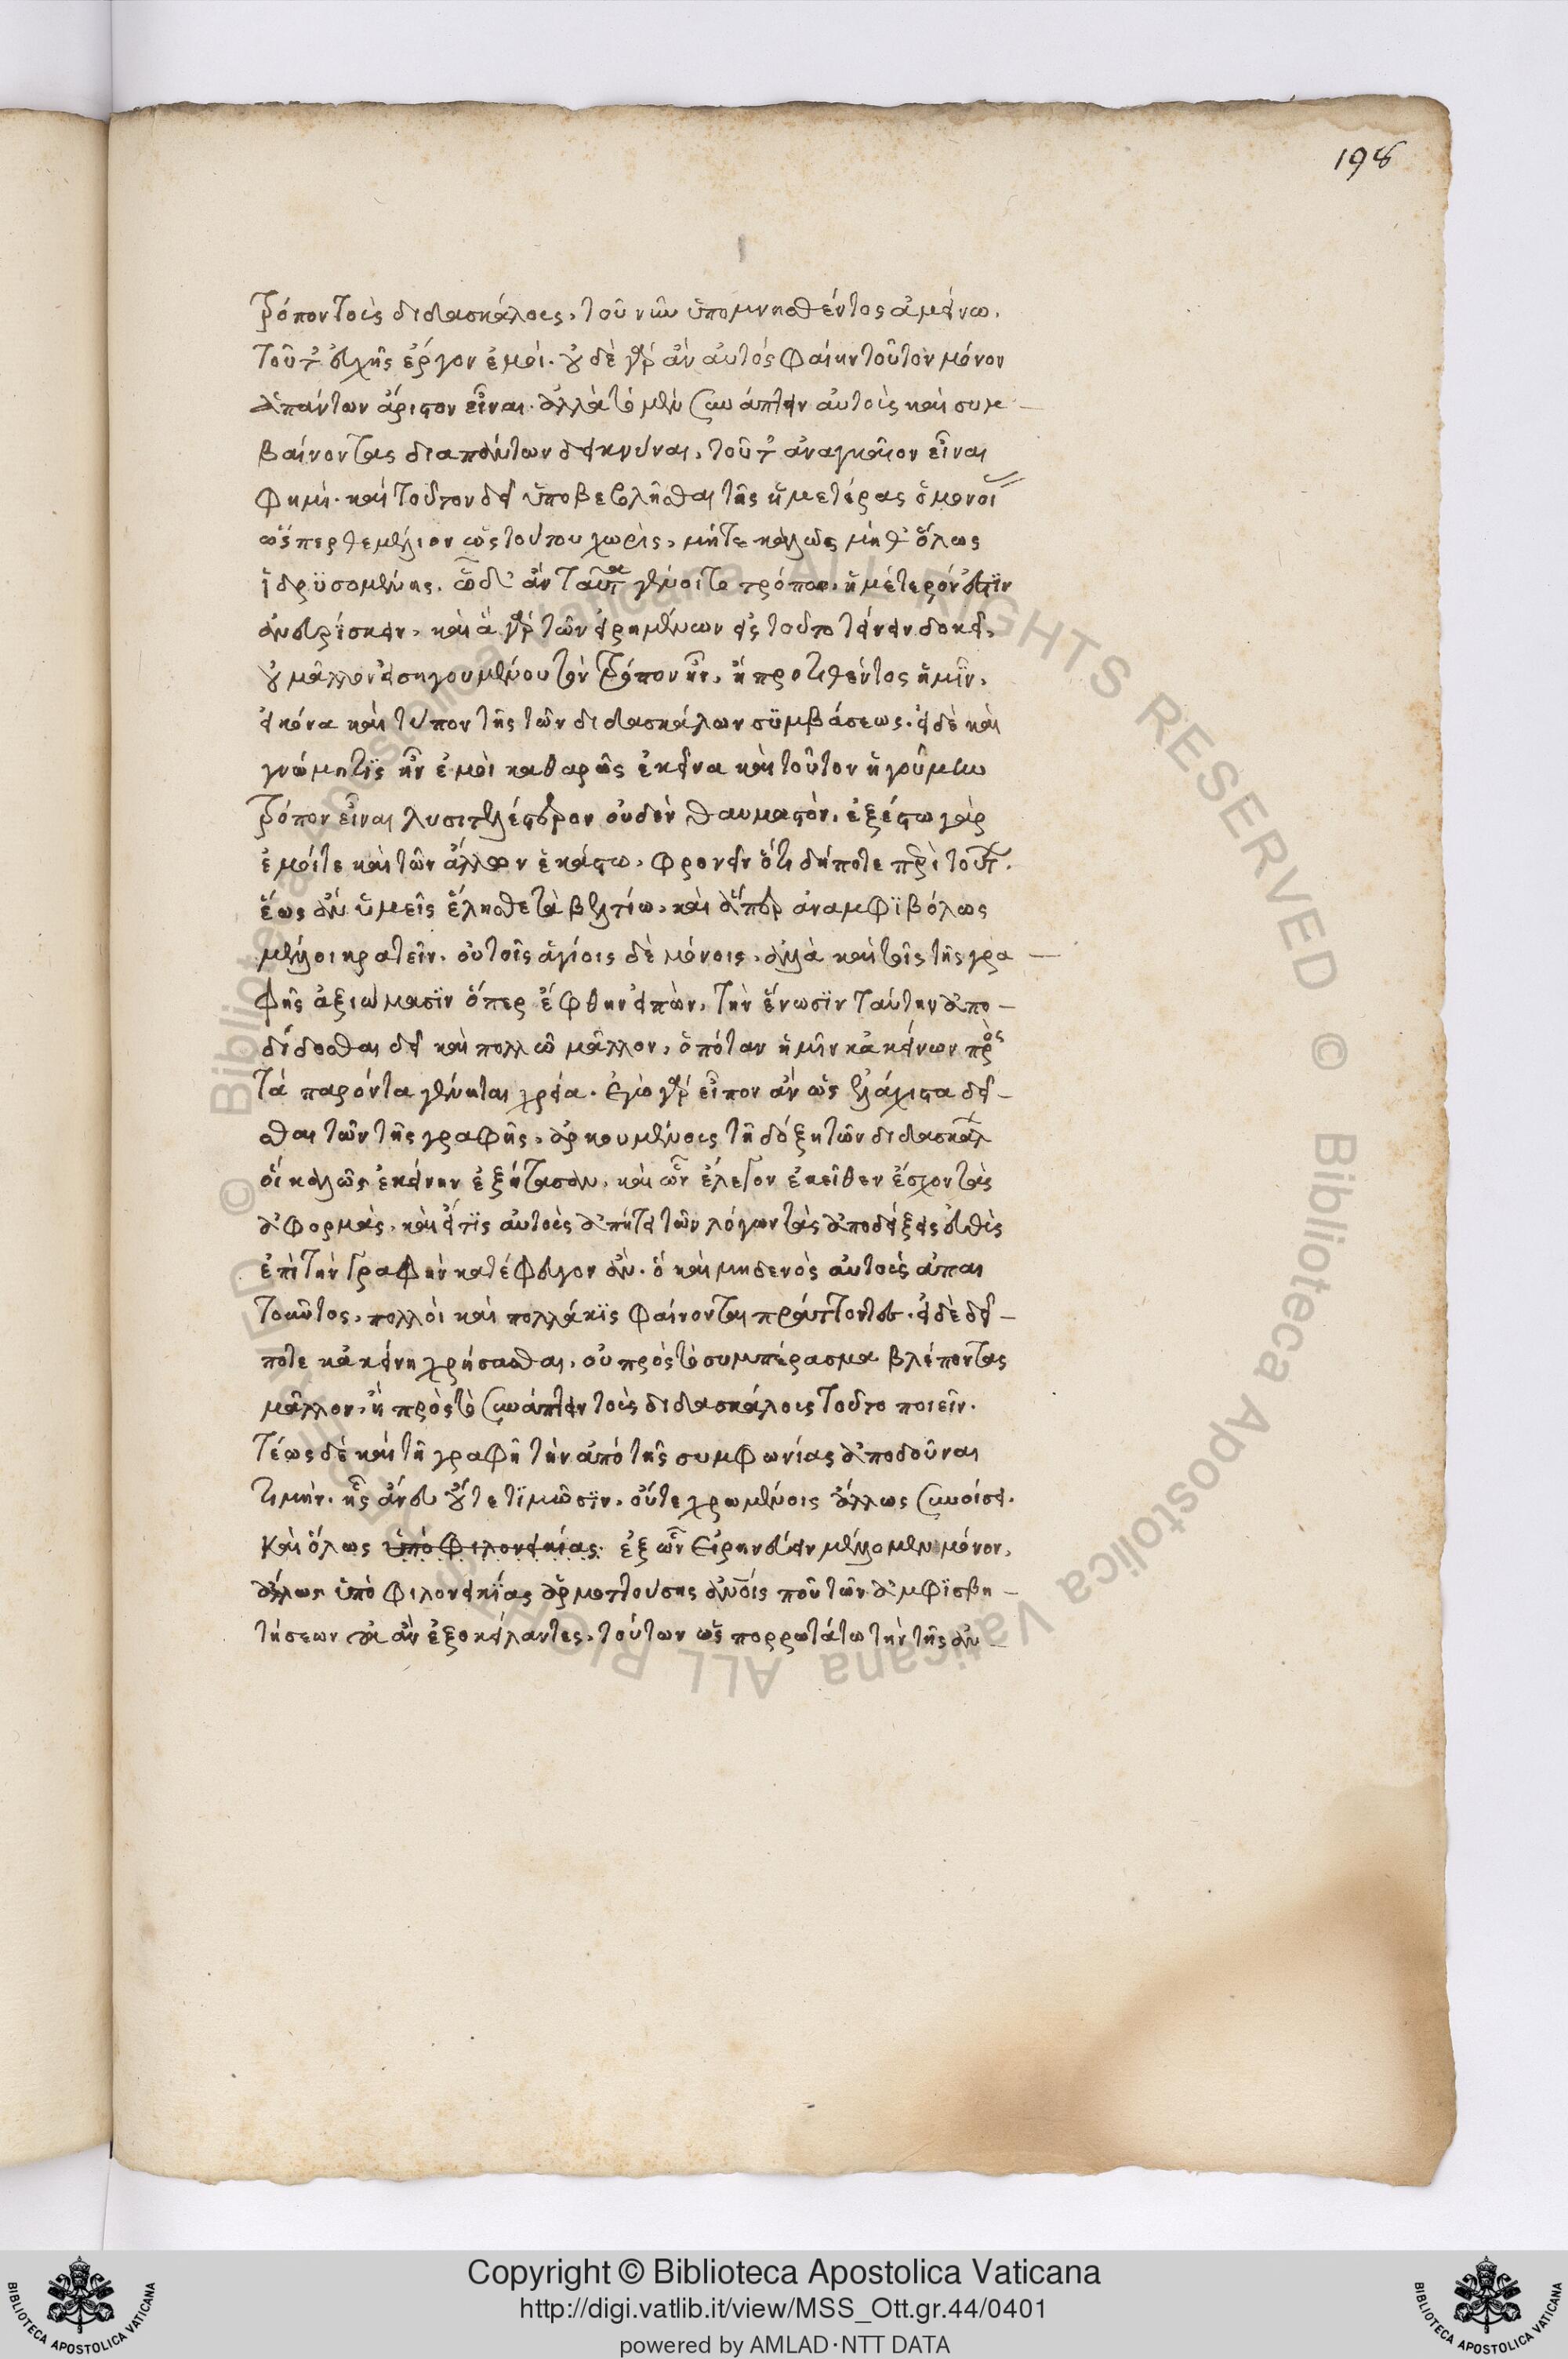 198
τρόπον τοῖς διδασκάλοις, τοῦ νῦν ὑπομνησθέντος ἀμείνω.
τοῦτ' εὐχῆς ἔργον ἐμοί. οὐδὲ γὰρ ἂν αὐτὸς φαίην τοῦτον μόνον
ἁπάντων ἄριστον εἶναι. ἀλλὰ τὸ μὲν συνάπτειν αὐτοῖς καὶ συμ-
βαίνοντας διαπάντων δεικνύναι, τοῦτ' ἀναγκαῖον εἶναι
φημί. καὶ τοῦτον δεῖ ὑποβεβλῆσθαι τῆς ἡμετέρας ὁμονοί
ὥσπερ θεμέλιον ὡς τούτου χωρὶς, μήτε καλῶς μήθ' ὅλως
ἱδρϋσομένης. ᾧ δ' ἂν ταῦτα γένοιτο τρόπῳ, ἡμέτερόν ἐστϊν
ἀνευρΐσκειν, καὶ ἃ γὰρ τῶν εἰρημένων εἰς τοῦτο τείνειν δοκεῖ,
οὐ μᾶλλον εἰσηγουμένου τὸν τρόπον ἦν, ἢ προτιθέντος ἡμῖν,
εἰκόνα καὶ τύπον τῆς τῶν διδασκάλων σϋμβάσεως. εἰ δὲ καὶ
γνώμη τϊς ἦν ἐμοὶ καθαρῶς ἐκεῖνα καὶ τοῦτον ἡγοῦμην
τρόπον εἶναι λυσιτελέστερον οὐδὲν θαυμαστόν. ἐξέστω γὰρ
ἐμοί τε καὶ τῶν ἄλλων ἑκάστω, φρονεῖν ὅτι δήποτε περὶ τούτ.
ἕως ἂν ὑμεῖς ἕλησθε τὰ βελτίω, καὶ ἅπερ ἀναμφϊβόλως
μέλλοι κρατεῖν. οὐ τοῖς ἁγίοις δὲ μόνοις, ἀλλὰ καὶ τοῖς τῆς γρα
φῆς ἀξιώμασϊν ὅπερ ἔφθην εἰπὼν, τὴν ἕνωσϊν ταύτην ἀπο-
δίδοσθαι δεῖ καὶ πολλῶ μᾶλλον, ὁπόταν ἡμῖν κἀκείνων πρὸς
τὰ παρόντα γένηται χρεία. ἐγὼ γὰρ εἶπον ἂν ὡς ἐλάχιστα δεῖ-
σθαι τῶν τῆς γραφῆς, ἀρκουμένοις τῆ δόξη τῶν διδασκάλ
οἳ καλῶς ἐκείνην ἐξήτασαν, καὶ ὧν ἔλεγον ἐκεῖθεν ἔσχον τὰς
ἀφορμὰς, καὶ εἴ τϊς αὐτοὺς ἀπήτει τῶν λόγων τὰς ἀποδείξεις εὐθὺς
ἐπὶ τὴν γραφὴν κατέφευγον ἄν. ὃ καὶ μηδενὸς αὐτοὺς ἀπαι
τοῦντος, πολλοὶ καὶ πολλάκϊς φαίνονται πράττοντες. εἰ δὲ δεῖ-
ποτε κἀκείνη χρήσασθαι, οὐ πρὸς τὸ συμπέρασμα βλέποντας
μᾶλλον, ἢ πρὸς τὸ συνάπτειν τοὺς διδασκάλους τοῦτο ποιεῖν.
τέως δὲ καὶ τῆ γραφῆ τὴν ἀπὸ τῆς συμφωνίας ἀποδοῦναι
τιμήν. ἧς ἄνευ οὔτε τϊμῶσϊν, οὔτε χρωμένοις ἄλλως συνοίσει.
καὶ ὅλως ὑπὸ φιλονεικίας. ἐξ ὧν εἰρηνεύειν μέλλομεν μόνον,
ἄλλως ὑπὸ φιλονεικΐας ἁρμοττούσης ἐνίοις που τῶν ἀμφϊσβη-
τήσεων οὐκ ἂν ἐξοκείλαντες, τούτων ὡς πορρωτάτω τὴν τῆς ἀν-
Copyright © Biblioteca Apostolica Vaticana
http://digi.vatlib.it/view/MSS_Ott.gr.44/0401
powered by AMLAD·NTT DATA
BIBLIOTECA APOSTOLICA VATICANA
BIBLIOTECA APOSTOLICA VATICANA